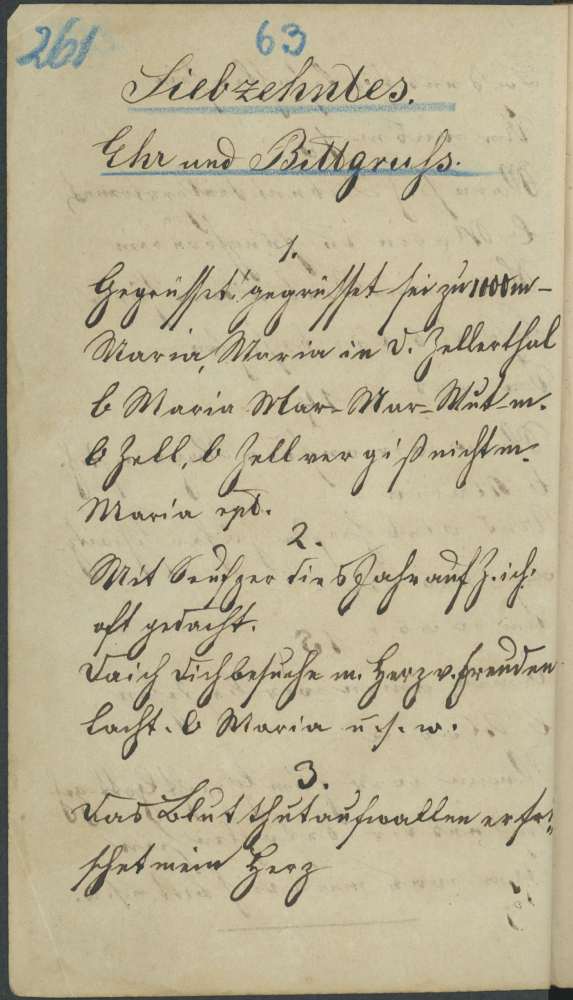 261
63
Siebzehntes.
Ehr und Bittgruss.
1.
Gegrüsset! gegrüsset sei zu 1000 m-
Maria, Maria in d. Zellerthal
O Maria Mar- Mar- Mut-m.
O Zell, O Zell vergiß nicht m.
Maria ept.
2.
Mit Seufzer dies Jahr auf Z. ich
oft gedacht.
Da ich dich besuche m. Herz v. Freuden
lacht. O Maria u. s. w.
3.
Das Blut thut aufwallen erfri¬
schet mein Herz